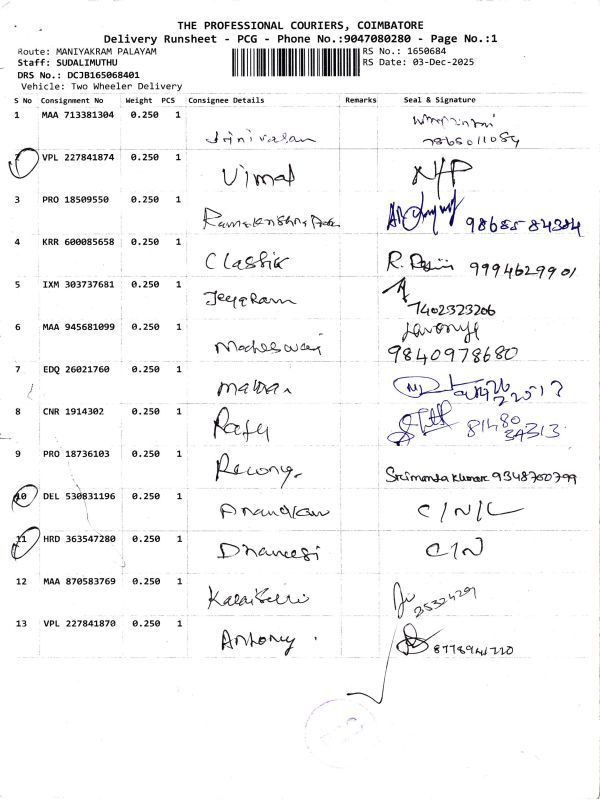 THE PROFESSIONAL COURIERS, COIMBATORE
Delivery Runsheet - PCG - Phone No.:9047080280 - Page No.:1
Route: MANIYAKRAM PALAYAM RS No.: 1650684
Staff: SUDALIMUTHU RS Date: 03-Dec-2025
DRS No.: DCJB165068401
Vehicle: Two Wheeler Delivery
S No Consignment No Weight PCS Consignee Details Remarks Seal & Signature
1 MAA 713381304 0.250 1
Srinivasan 7865011084
2 VPL 227841874 0.250 1
Vimal
3 PRO 18509550 0.250 1
9868584384
4 KRR 600085658 0.250 1
Classik R. 9994629901
5 IXM 303737681 0.250 1
Jeyaram 7402323206
6 MAA 945681099 0.250 1
9840978680
7 EDQ 26021760 0.250 1
8 CNR 1914302 0.250 1
81480
9 PRO 18736103 0.250 1
9348760799
10 DEL 530831196 0.250 1
C/N/L
11 HRD 363547280 0.250 1
C/N
12 MAA 870583769 0.250 1
Kalaiselvi
13 VPL 227841870 0.250 1
Antony